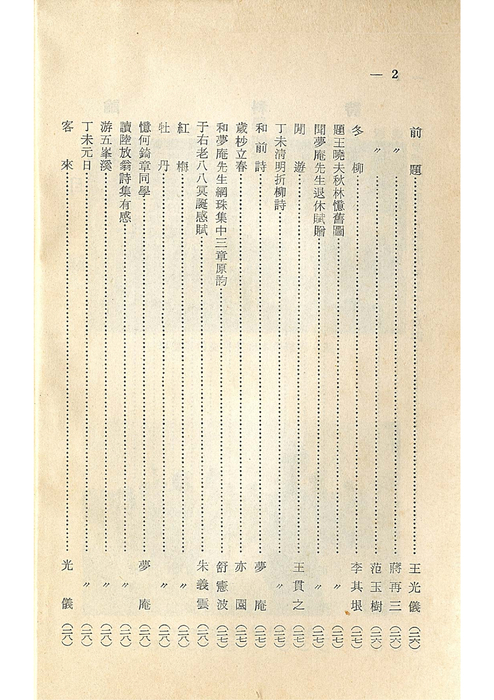 — 2
前題……王光儀(二六)
〃……蔣再三(二六)
〃……范玉樹(二六)
冬柳……李其垠(二七)
題王曉夫秋林憶舊圖……〃(二七)
聞夢庵先生退休賦贈……〃(二七)
閒遊……王貫之(二七)
丁未清明折柳詩……〃(二七)
和前詩……夢庵(二七)
歲杪立春……亦園(二七)
和夢庵先生網珠集中三章原韵……舒憲波(二七)
于右老八八冥誕感賦……朱義雲(二八)
紅梅……〃(二八)
牡丹……〃(二八)
憶何錡章同學……夢庵(二八)
讀陸放翁詩集有感……〃(二八)
游五峯溪……〃(二八)
丁未元日……〃(二八)
客來……光儀(二八)